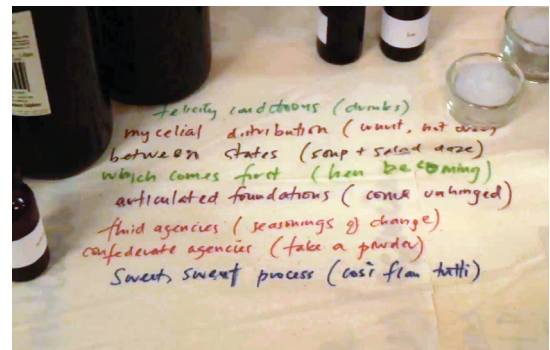 felicity conditions (drinks)
mycelial distribution (want, not
between states (soup + salad doze)
which comes first (hen becoming)
articulated foundations (come unhinged)
fluid agencies (seasonings of change)
confederate agencies (take a powder)
Sweet, sweet process (così flan tutti)